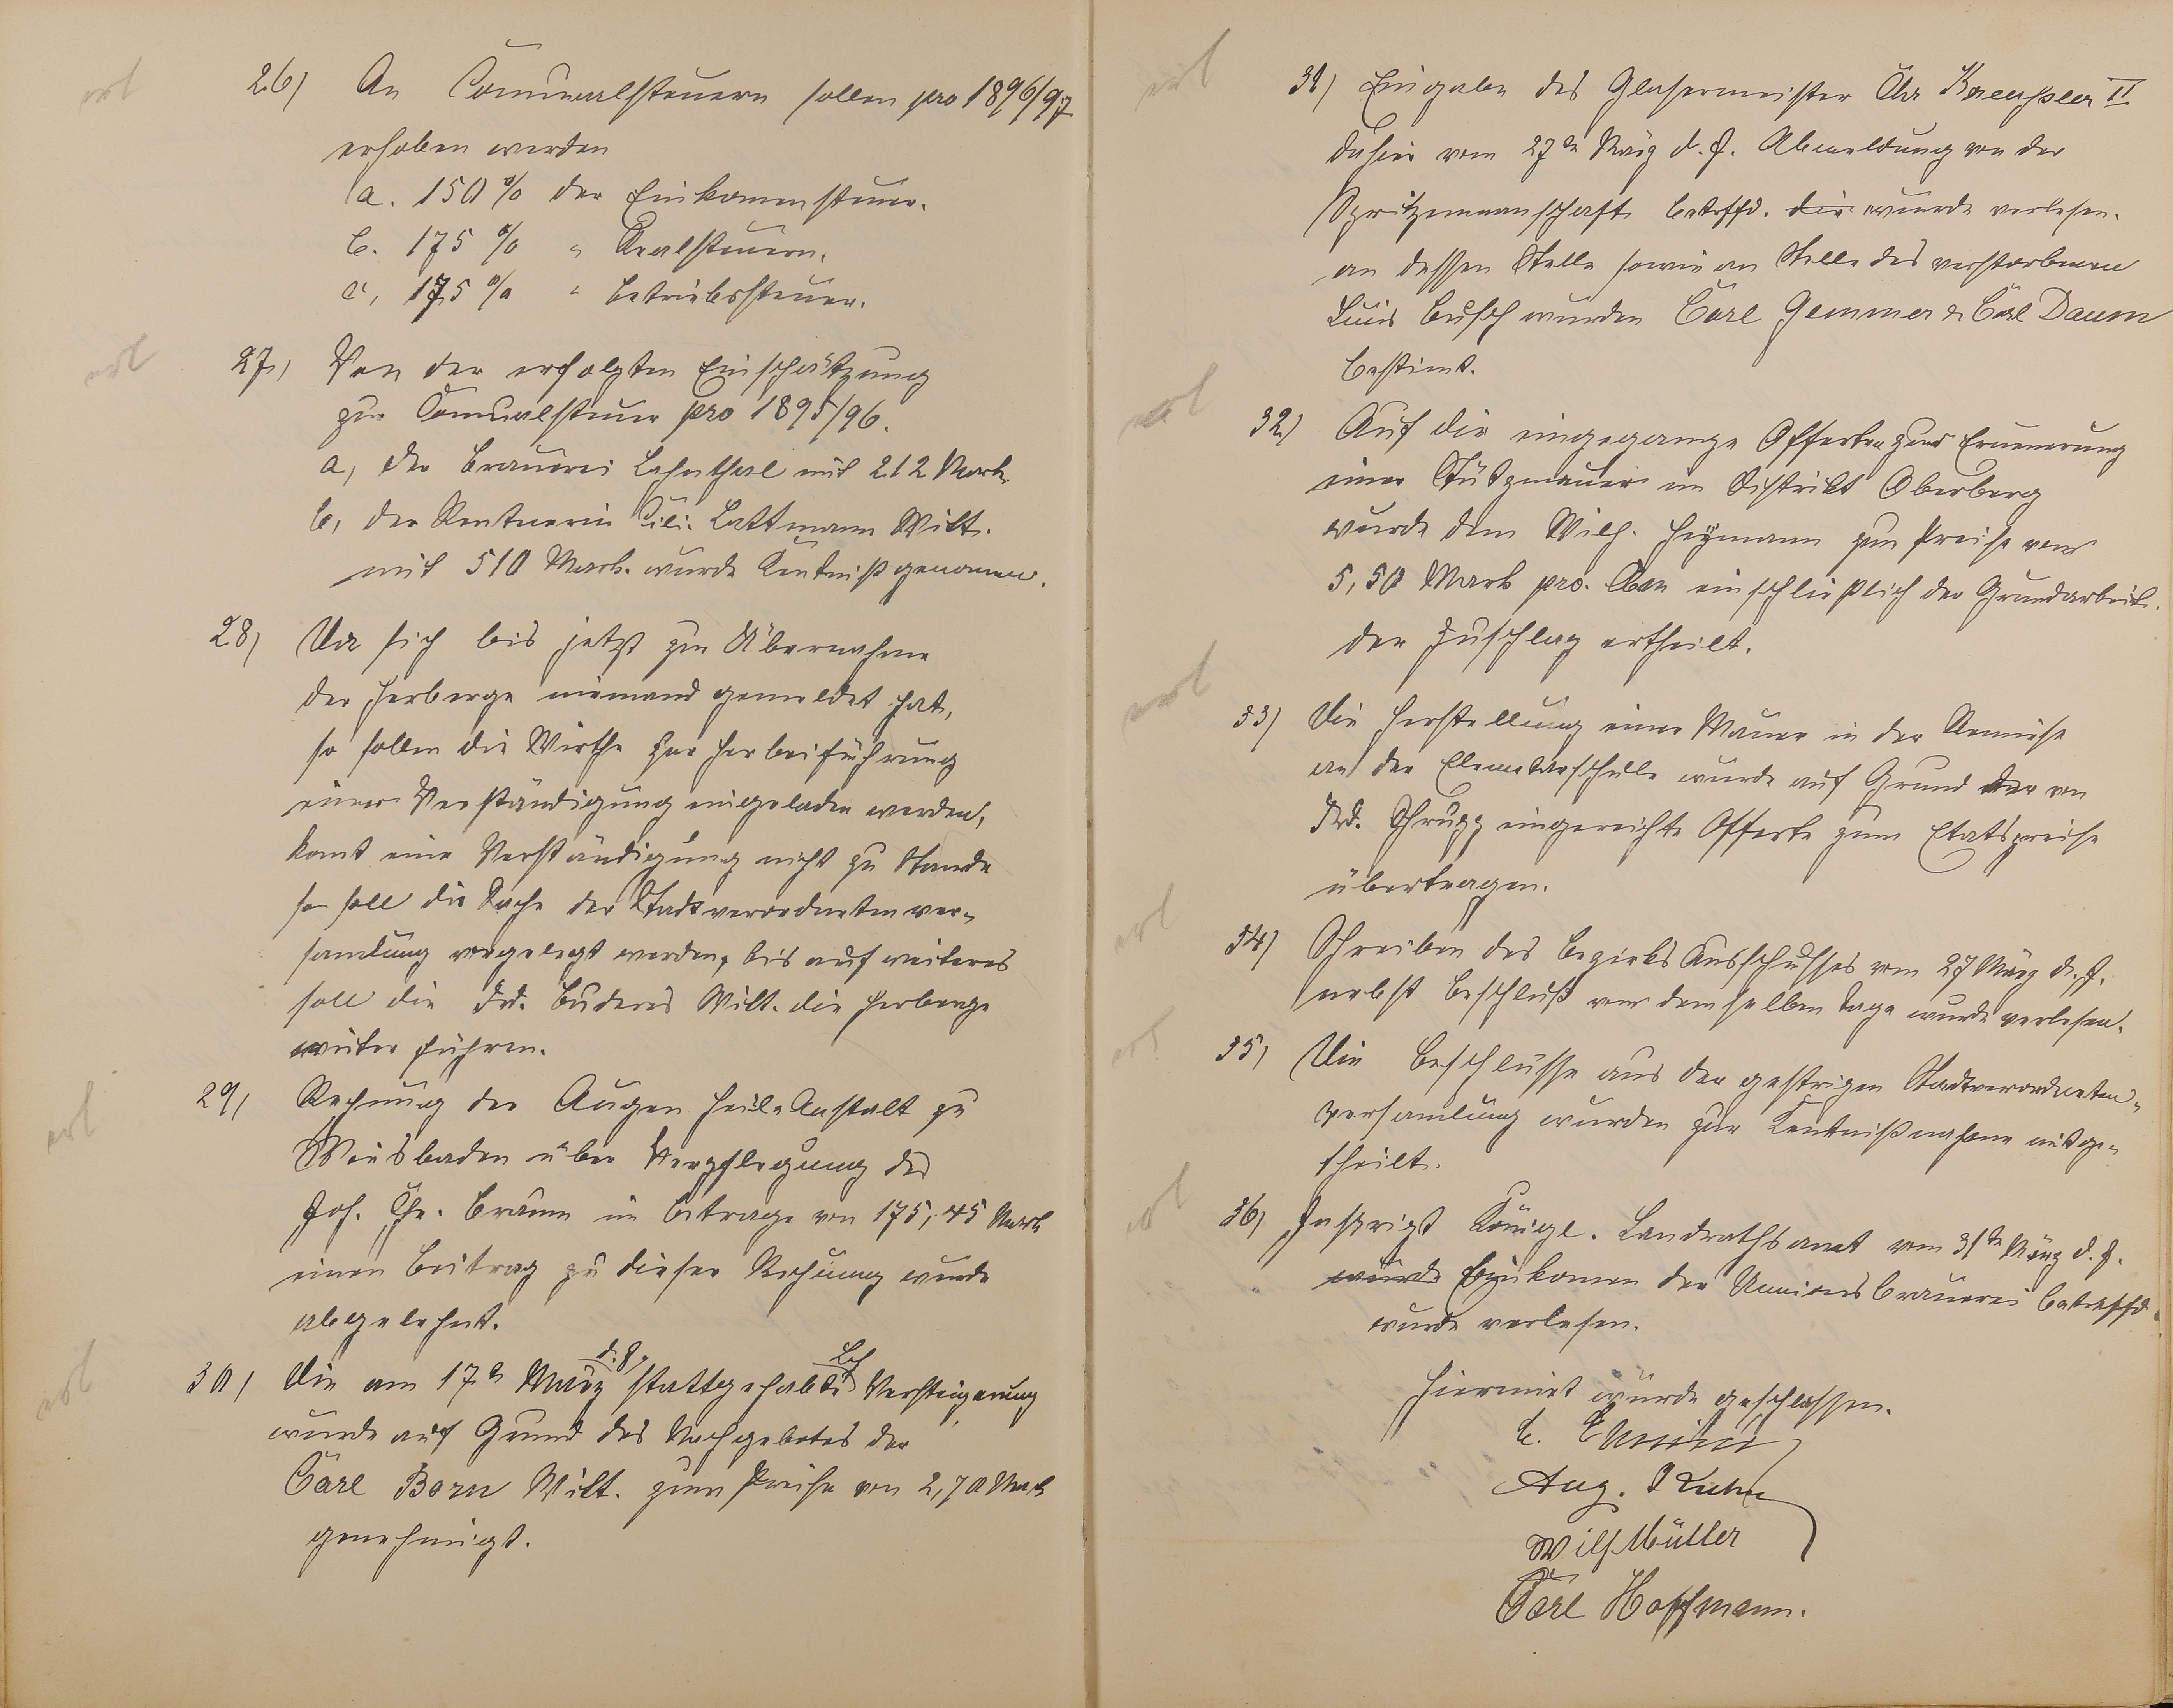 erl
26) An Communalsteuern sollen pro 1896/97
erhoben werden
a. 150 % der Einkomensteuer.
b. 175 % " Realsteuern.
c, 175 % " Betriebssteuer.
erl
27, Von der erfolgten Einschätzung
zur Comunalsteuer pro 1895/96.
a, der Brauerei Lahnthal mit 212 Mark.
b, der Rentnerin Lattmann Witt.
mit 510 Mark. wurde Kentniß genomen.
28) Da sich bis jetzt zur Übernahme
der Herberge niemand gemeldet hat,
so sollen die Wirthe zur Herbeiführung
einer Verständigung eingeladen werden,
komt eine Verständigung nicht zu Stande
so soll die Sache der Stadtverordnetenver-
samlung vorgelegt werden, bis auf weiteres
soll die Frd. Buderus Witt. die Herberge
weiter führen.
erl
29, Rechnung der Augen Heil-Anstalt zu
Wiesbaden über Verpflegung des
Joh. Chr. Braun im Betrage von 175,45 Mark
einen Beitrag zu dieser Rechnung wurde
abgelehnt.
erl
30, Die am 17n März d. J. stattgehabte Versteigerung
wurde auf Grund des Nachgebotes der
Carl Born Witt. zum Preise von 2,70 Mark
genehmigt.
erl
31) Eingabe des Glasermeister Chr Kaeußler II
dahier vom 27n März d. J. Abmeldung von der
Spritzenmannschaft betrffd. die wurde verlesen.
an dessen Stelle sowie an Stelle des verstorbenen
Luis Busch wurden Carl Gemmer & Carl Daum
bestimt.
erl
32) Auf die eingegange Offerten zur Erneuerung
einer Stützmauer im Distrikt Oberberg
wurde dem Wilh. Heymann zum Preise von
5,50 Mark pro. Cbm einschließlich der Grundarbeit.
der Zuschlag ertheilt.
erl
33) Die Herstellung einer Mauer in der Remise
an der Elementarschule wurde auf Grund der von
Frd. Schrupp eingereichte Offerte zum Etatspreise
übertragen.
erl
34) Schreiben des Bezirks Ausschusses vom 27 März d. J.
nebst Beschluß von demselben Tage wurde verlesen.
erl
35, Die Beschlüsse aus der gestrigen Stadtverordneten-
versamlung wurden zur Kentnißnahme mitge-
theilt.
erl
36, Inschrift Königl. Landrathsamt vom 31ten März d. J.
wurde Einkomen der Unionsbrauerei betreffd.
wurde verlesen.
Hiermit wurde geschlossen.
Aug. Kuhn
Wilh Müller
Carl Hoffmann.